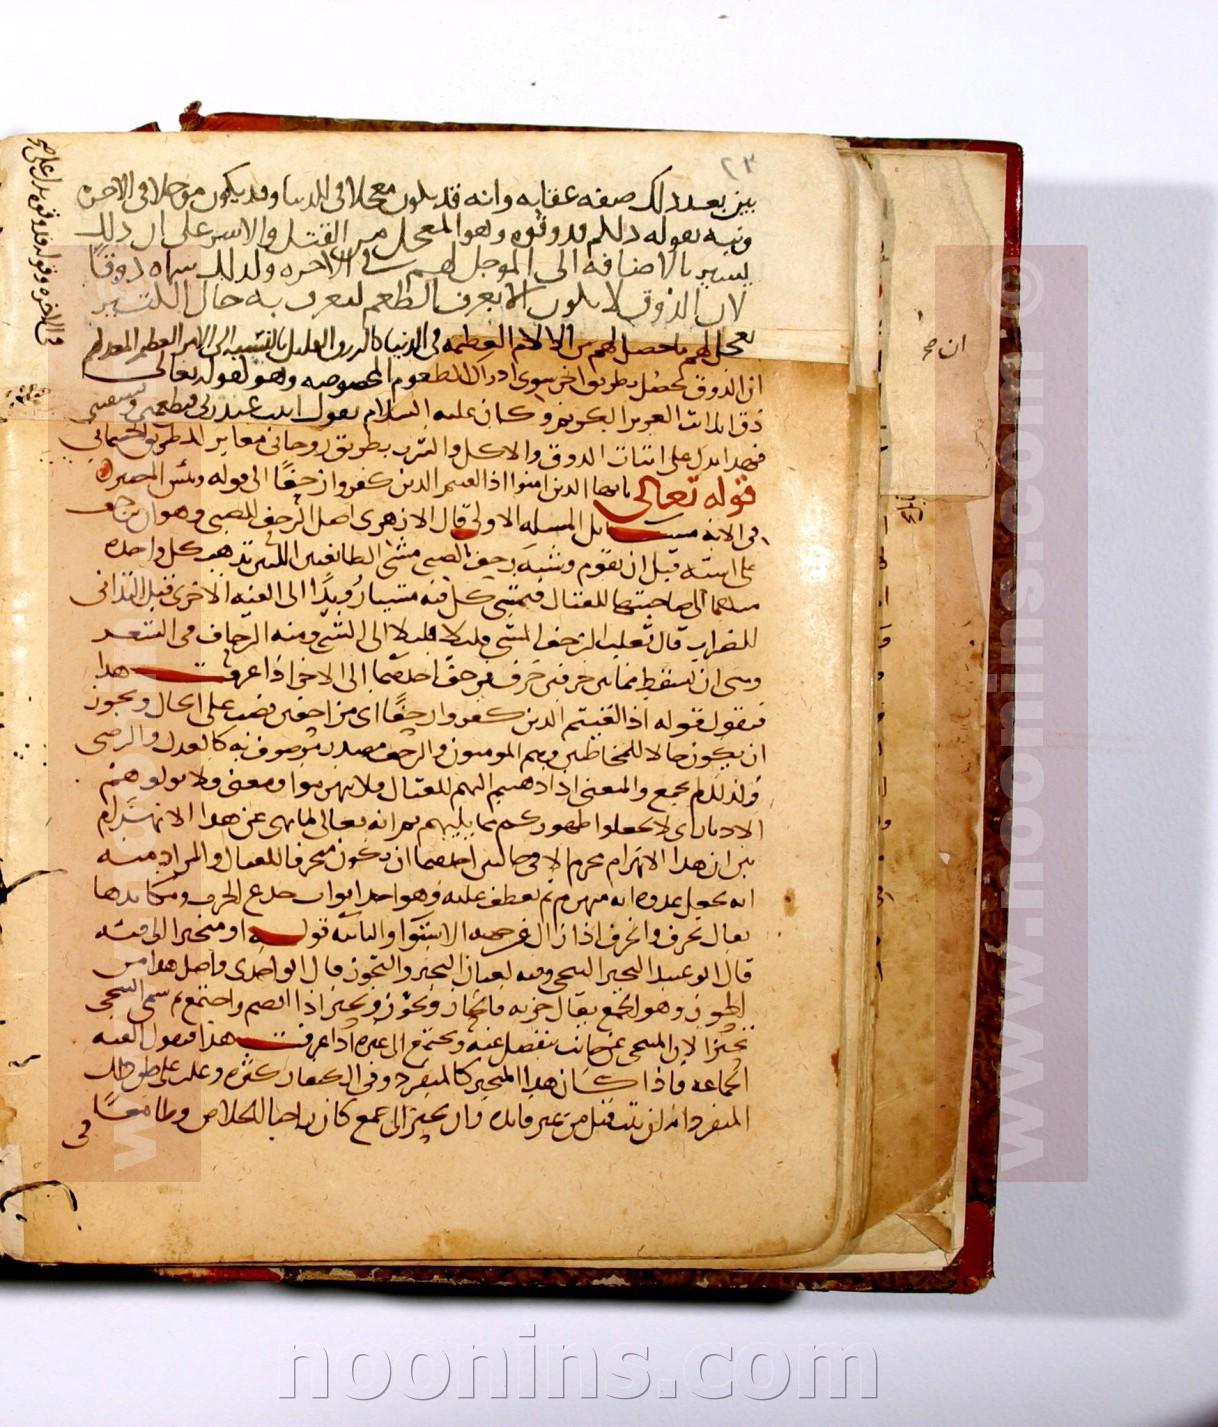 ٢٣
بين بعد ذلك صفة عقابه وانه قد يكون معجلا فى الدنيا وقد يكون موجلا فى الاخرة
ونبه بقوله ذلكم فذوقوه وهو المعجل من القتل والاسر على ان ذلك
يسير بالاضافة الى الموجل لهم فى الاخرة ولذلك سماه ذوقا
لان الذوق لا يكون الا بعرف الطعم ليعرف به حال الكثير
فعجل لهم ما حصل لهم من الالام العظيمة فى الدنيا كالذوق القليل بالنسبة الى الامر العظيم المعد لهم
ان الذوق يحصل بطريق اخر سوى ادراك الطعوم المخصوصة وهو كقوله تعالى
ذق انك انت العزيز الكريم وكان عليه السلام يقول ابيت عند ربى فيطعمنى ويسقينى
فهذا يدل على اثبات الذوق والاكل والشرب بطريق روحانى مغاير للطريق الجسمانى
قوله تعالى يايها الذين امنوا اذا لقيتم الذين كفروا زحفا الى قوله وبئس المصير
فى الاية مسائل المسلة الاولى قال الازهرى اصل الزحف للصبى وهو ان يزحف
على استه قبل ان يقوم وشبه بزحف الصبى مشى الطائفتين اللتين تذهب كل واحدة
منهما الى صاحبتها للقتال فيمشى كل فية مشيا رويدا الى الفية الاخرى قبل التدانى
للضراب قال ثعلب الزحف المشى قليلا قليلا الى الشى ومنه الزحاف فى الشعر
وهى ان يسقط مما بين حرفين حرف فيزحف احدهما الى الاخر اذا عرفت هذا
فنقول قوله اذا لقيتم الذين كفروا زحفا اى متزاحفين نصب على الحال ويجوز
ان يكون حالا للمخاطبين وهم المومنون والزحف مصدر موصوف به كالعدل والرضى
ولذلك لم يجمع والمعنى اذا ذهبتم اليهم للقتال فلا تنهزموا ومعنى ولا تولوهم
الادبار اى لا تجعلوا ظهوركم مما يليهم ثم انه تعالى لما نهى عن هذا الانهزام
بين ان هذا الانهزام محرم الا فى حالتين احدهما ان يكون متحرفا للقتال والمراد منه
انه يخيل عدوه انه منهزم ثم يعطف عليه وهو احد ابواب خدع الحرب ومكايدها
يقال تحرف وانحرف اذا زال عن جهة الاستوا والثانية قوله او متحيزا الى فئة
قال ابو عبيد التحيز التنحى وفيه لغتان التحيز والتحوز قال الواحدى واصل هذا من
الحوز وهو الجمع يقال حزته فانحاز وتحوز وتحيز اذا انضم واجتمع ثم سمى التنحى
تحيزا لان المتنحى عن جانب ينفصل عنه ويجتمع الى غيره اذا عرفت هذا فنقول الفية
الجماعة فاذا كان هذا المتحيز كالمنفرد وفى الكفار كثرة وغلب على ظن ذلك
المنفرد انه ان ثبت قتل من غير فايدة وان تحيز الى جمع كان راجيا للخلاص وطامعا
فى
ان صح
noonins.com
www.noonins.com ©